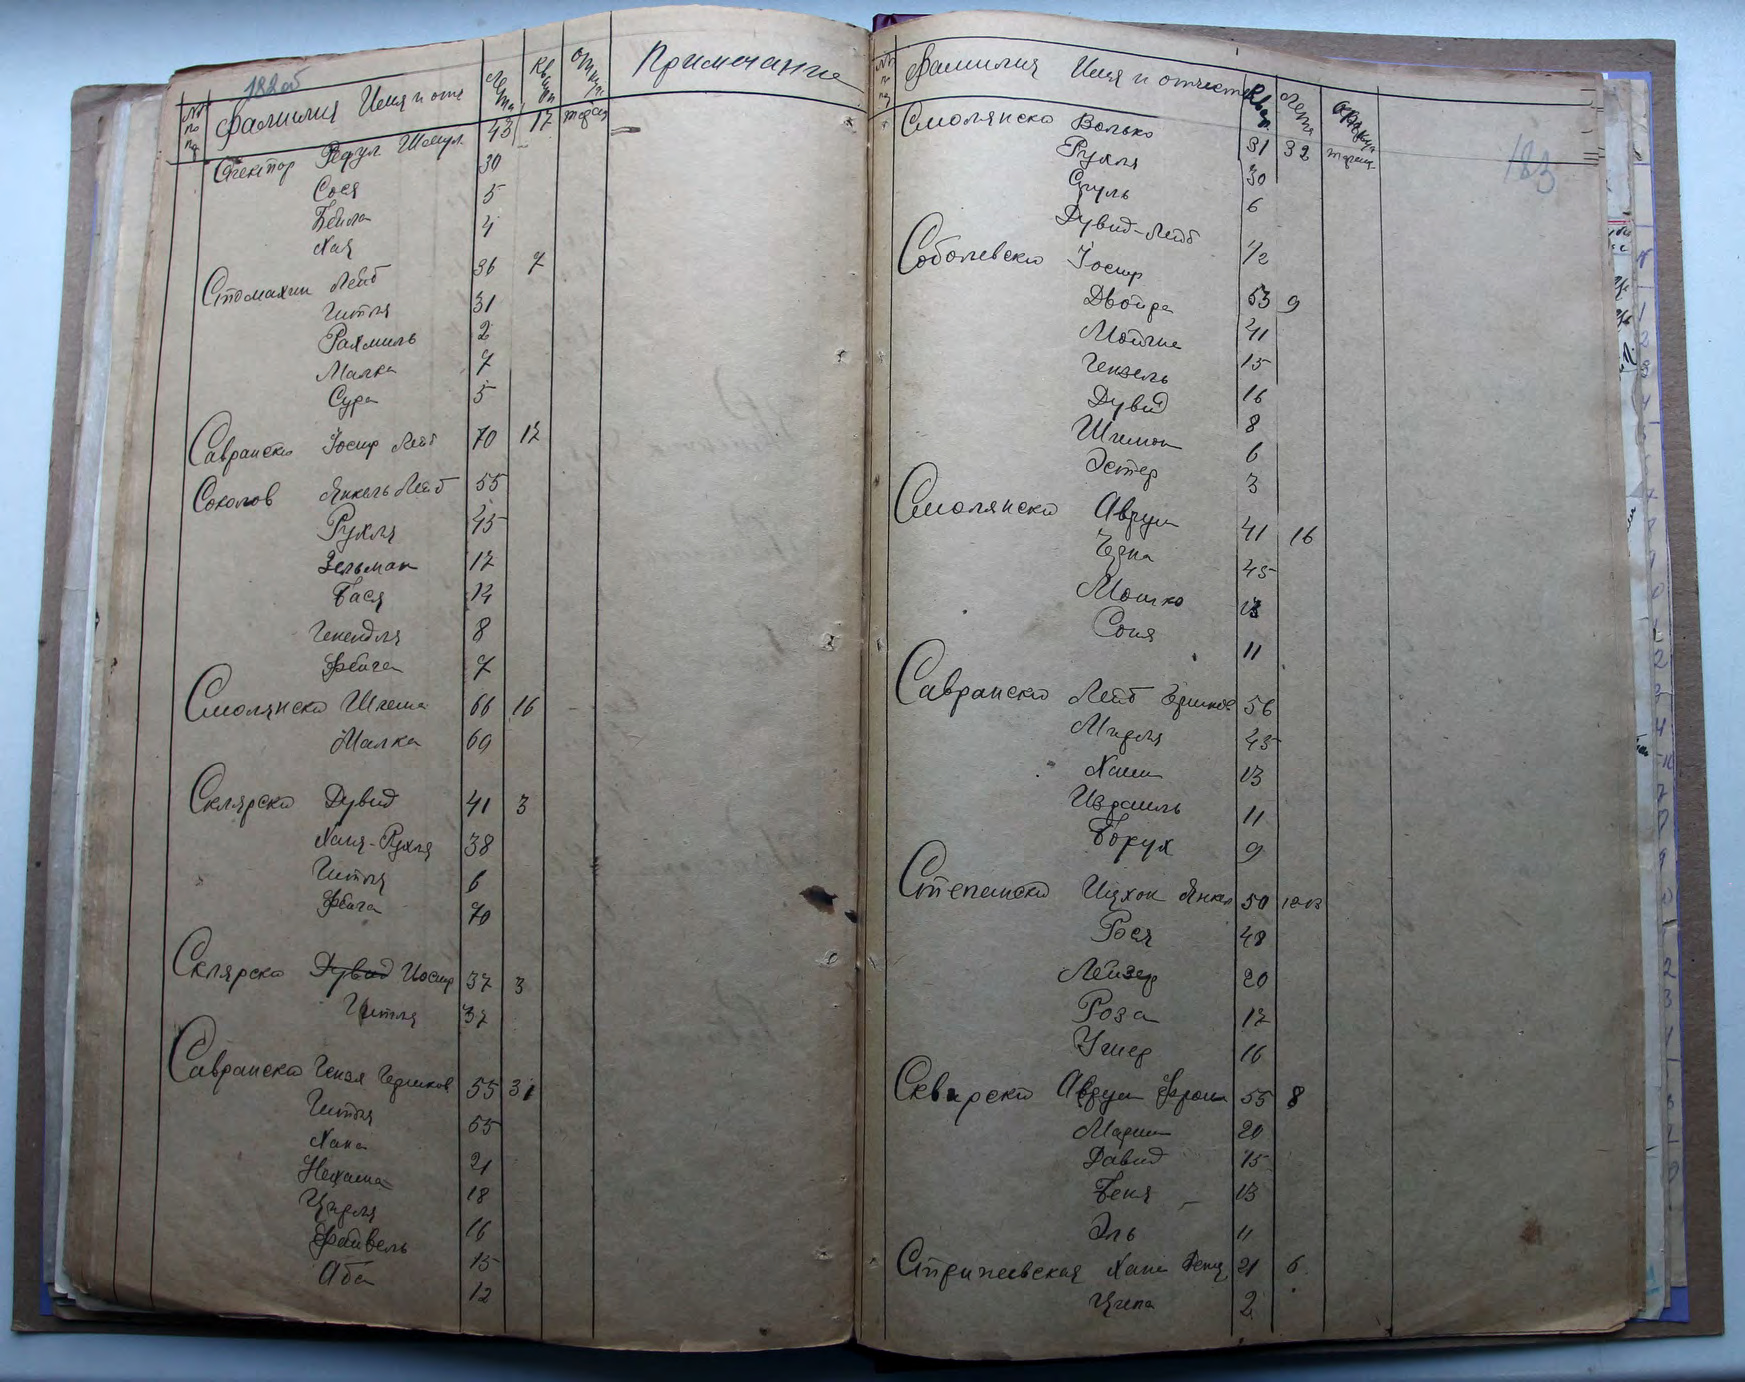 182об
№№ по пд Фамилия Имя и отч Лета Кварт Откуда Примечание
Спектор Рефул Шмул 43 17
Сося 30
Бейла 5
Хая 4
Стомахин Лейб 36 7
Гитля 31
Рахмиль 2
Малка 7
Сура 5
Савранск Иосиф Лейб 70 17
Соколов Янкель Лейб 55
Рухля 45
Зельман 17
Бася 14
Генендля 8
Фейга 7
Смолянско Шлема 66 16
Малка 69
Склярско Дувид 41 3
Хая-Рухля 38
Гитля 6
Фейга 70
Склярско Дувид Иосиф 37 3
Гитля 37
Савранско Гензя Гершков 55 31
Гитля 55
Хана 21
Нехама 18
Цирля 16
Файвель 15
Аба 12
183
№№ п пд Фамилия Имя и отчест Кварт Лета Откуда
Смолянско Волько 31 32
Рухля 30
Сруль 6
Дувид-Лейб 1/2
Соболевско Иосиф 53 9
Двойра 41
Мойше 15
Гензель 16
Дувид 8
Шлемон 6
Эстер 3
Смолянско Аврум 41 16
Една 45
Мошко 13
Соня 11
Савранско Лейб Гершков 56
Мирля 45
Хаим 13
Израиль 11
Борух 9
Степанско Ицхок Янкел 50
Рося 48
Лейзер 20
Роза 17
Ушер 16
Сквирско Аврум Фроим 55 8
Марим 20
Давид 15
Беня 13
Эль 11
Стрижевская Хана 21 6
Ципа 2